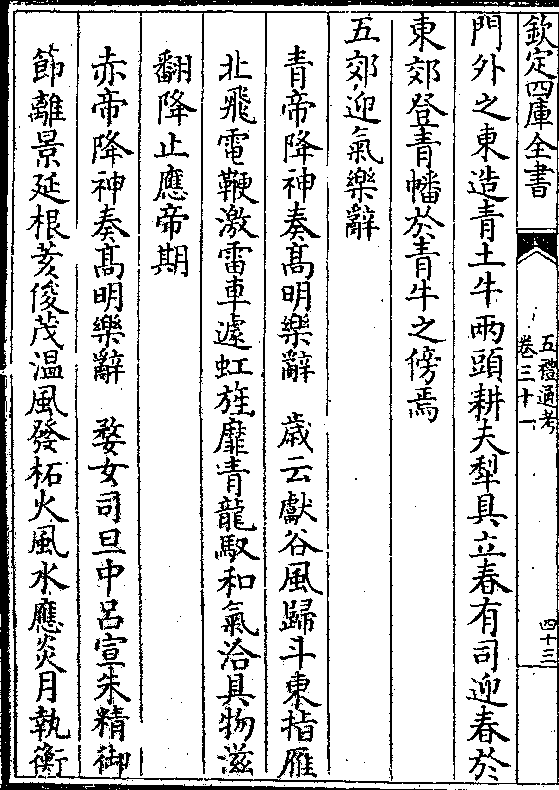 欽定四庫全書
五禮通考
卷三十一
四十三
門外之東造青土牛兩頭耕夫犂具立春有司迎春於
東郊登青幡於青牛之傍焉
五郊迎氣樂辭
青帝降神奏髙明樂辭　歳云獻谷風歸斗東指雁
北飛電鞭激雷車遽虹旌靡青龍馭和氣洽具物滋
翻降止應帝期
赤帝降神奏髙明樂辭　婺女司旦中呂宣朱精御
節離景延根荄俊茂温風發柘火風水應炎月執衡